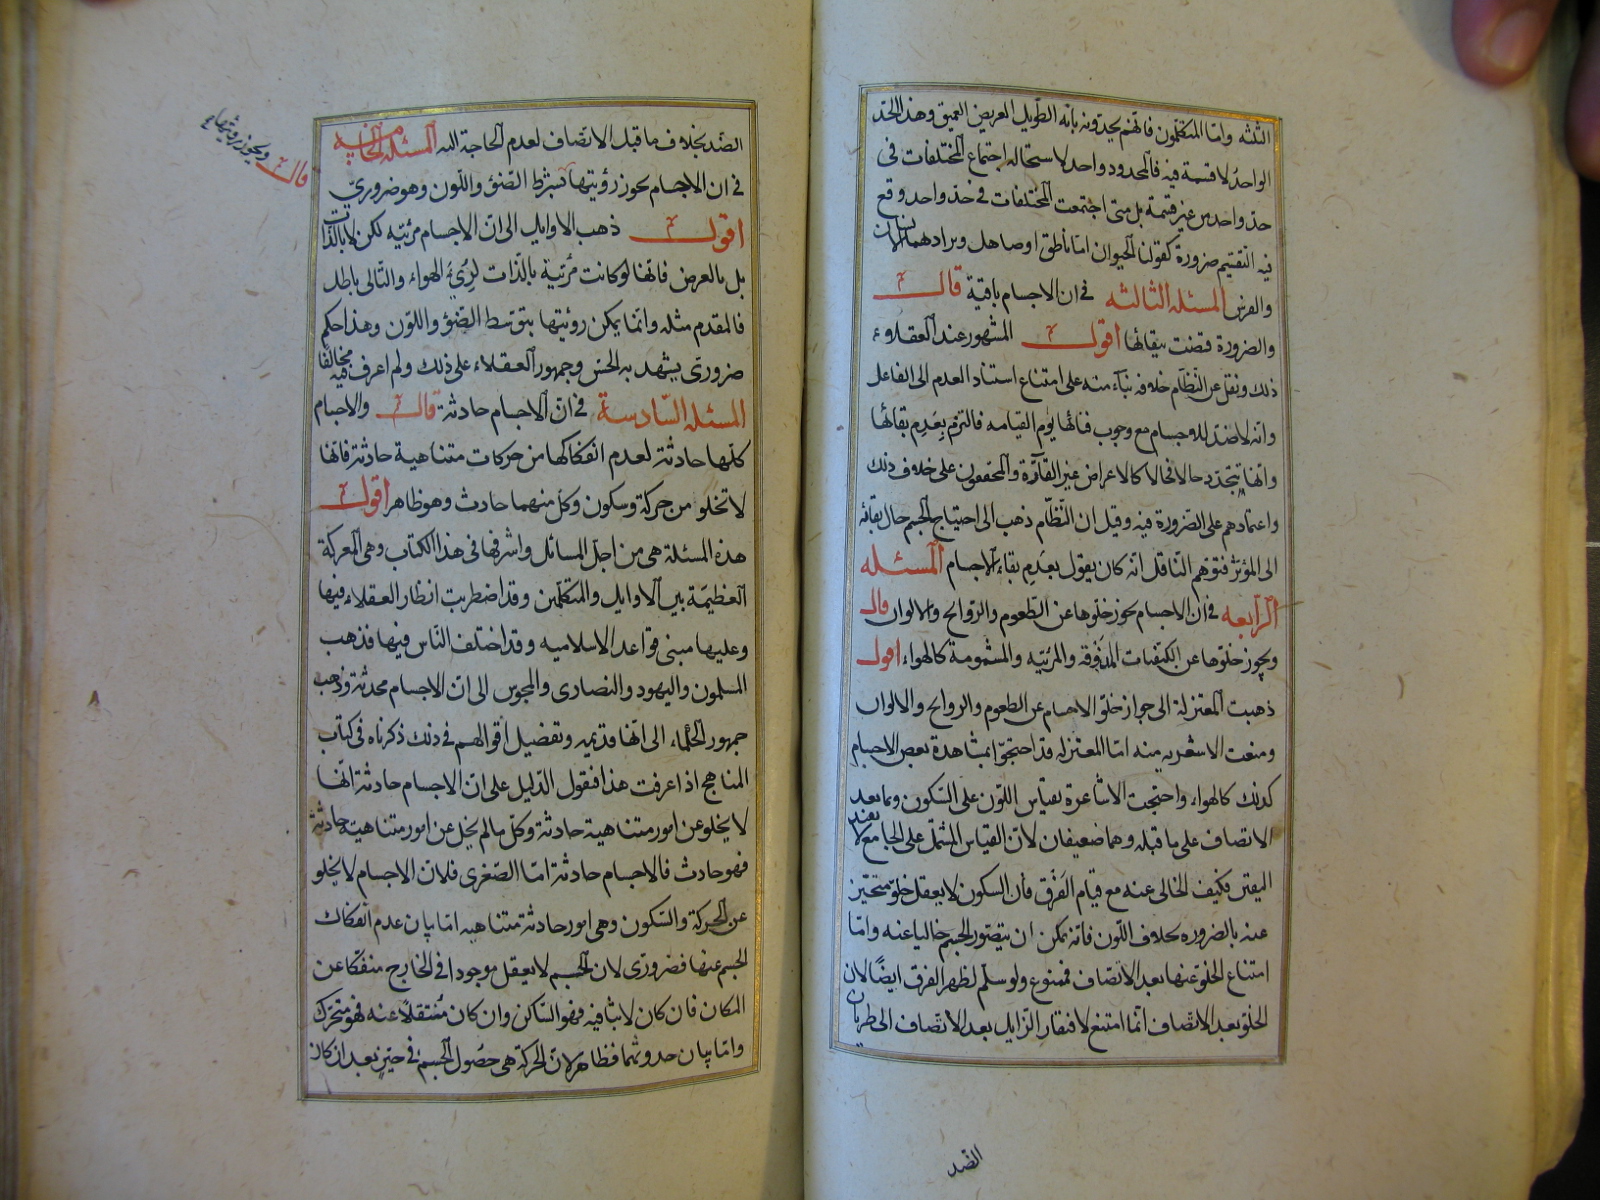 الثلثه واما المتكلمون فانهم يحدونه بانه الطويل العريض العميق وهذا الحد
الواحد لا قسمة فيه فالمحدود واحد لاستحالة اجتماع المختلفات فى
حد واحد من غير قسمة بل متى اجتمعت المختلفات فى حد واحد وقع
فيه التقسيم ضرورة كقولنا الحيوان اما ناطق او صاهل ويراد بهما الانسان
والفرس المسئلة الثالثه فى ان الاجسام باقية قال
والضرورة قضت ببقائها اقول المشهور عند العقلاء
ذلك ونقل عن النظام خلافه بناء منه على امتناع استناد العدم الى الفاعل
وانه لا ضد للاجسام مع وجوب فنائها يوم القيامه فالتزم بعدم بقائها
وانها تتجدد حالا فحالا كالاعراض غير القارة والمحققون على خلاف ذلك
واعتمادهم على الضرورة فيه وقيل ان النظام ذهب الى احتياج الجسم حال بقائه
الى المؤثر فتوهم الناقل انه كان يقول بعدم بقاء الاجسام المسئله
الرابعه فى ان الاجسام يجوز خلوها عن الطعوم والروائح والالوان قال
ويجوز خلوها عن الكيفيات المذوقة والمرئيه والمشمومة كالهواء اقول
ذهبت المعتزلة الى جواز خلو الاجسام عن الطعوم والروايح والالوان
ومنعت الاشعريه منه اما المعتزله فقد احتجوا بمشاهدة بعض الاجسام
كذلك كالهواء واحتجت الاشاعرة بقياس اللون على السكون وبما بعد
الاتصاف على ما قبله وهما ضعيفان لان القياس المشتمل على الجامع لا يفيد
اليقين فكيف الخالى عنه مع قيام الفرق فان السكون لا يعقل خلو متحيز
عنه بالضروره بخلاف اللون فانه يمكن ان يتصور الجسم خاليا عنه واما
امتناع الخلو عنها بعد الاتصاف فممنوع ولو سلم لظهر الفرق ايضا لان
الخلو بعد الاتصاف انما امتنع لافتقار الزايل بعد الاتصاف الى طريان
الضد
الضد بخلاف ما قبل الاتصاف لعدم الحاجة اليه المسئلة الخامسه
فى ان الاجسام يجوز رؤيتها بشرط الضوء واللون وهو ضرورى
قال ويجوز رؤيتها
اقول ذهب الاوايل الى ان الاجسام مرئيه لكن لا بالذات
بل بالعرض فانها لو كانت مرئية بالذات لرئى الهواء والتالى باطل
فالمقدم مثله وانما يمكن رؤيتها بتوسط الضوء واللون وهذا حكم
ضرورى يشهد به الحس وجمهور العقلاء على ذلك ولم اعرف فيه مخالفا
المسئلة السادسة فى ان الاجسام حادثة قال والاجسام
كلها حادثة لعدم انفكاكها من حركات متناهية حادثة فانها
لا تخلو من حركة وسكون وكل منهما حادث وهو ظاهر اقول
هذه المسئلة هى من اجل المسائل واشرفها فى هذا الكتاب وهى المعركة
العظيمة بين الاوايل والمتكلمين وقد اضطربت انظار العقلاء فيها
وعليها مبنى قواعد الاسلاميه وقد اختلف الناس فيها فذهب
المسلمون واليهود والنصارى والمجوس الى ان الاجسام محدثة وذهب
جمهور الحكماء الى انها قديمه وتفصيل اقوالهم فى ذلك ذكرناه فى كتاب
المناهج اذا عرفت هذا فنقول الدليل على ان الاجسام حادثة انها
لا يخلو عن امور متناهية حادثة وكل ما لم يخل عن امور متناهية حادثة
فهو حادث فالاجسام حادثة اما الصغرى فلان الاجسام لا يخلو
عن الحركة والسكون وهى امور حادثة متناهيه اما بيان عدم انفكاك
الجسم عنها فضرورى لان الجسم لا يعقل موجودا فى الخارج منفكا عن
المكان فان كان لابثا فيه فهو الساكن وان كان منتقلا عنه فهو متحرك
واما بيان حدوثهما فظاهر لان الحركة هى حصول الجسم فى حيز بعد ان كان